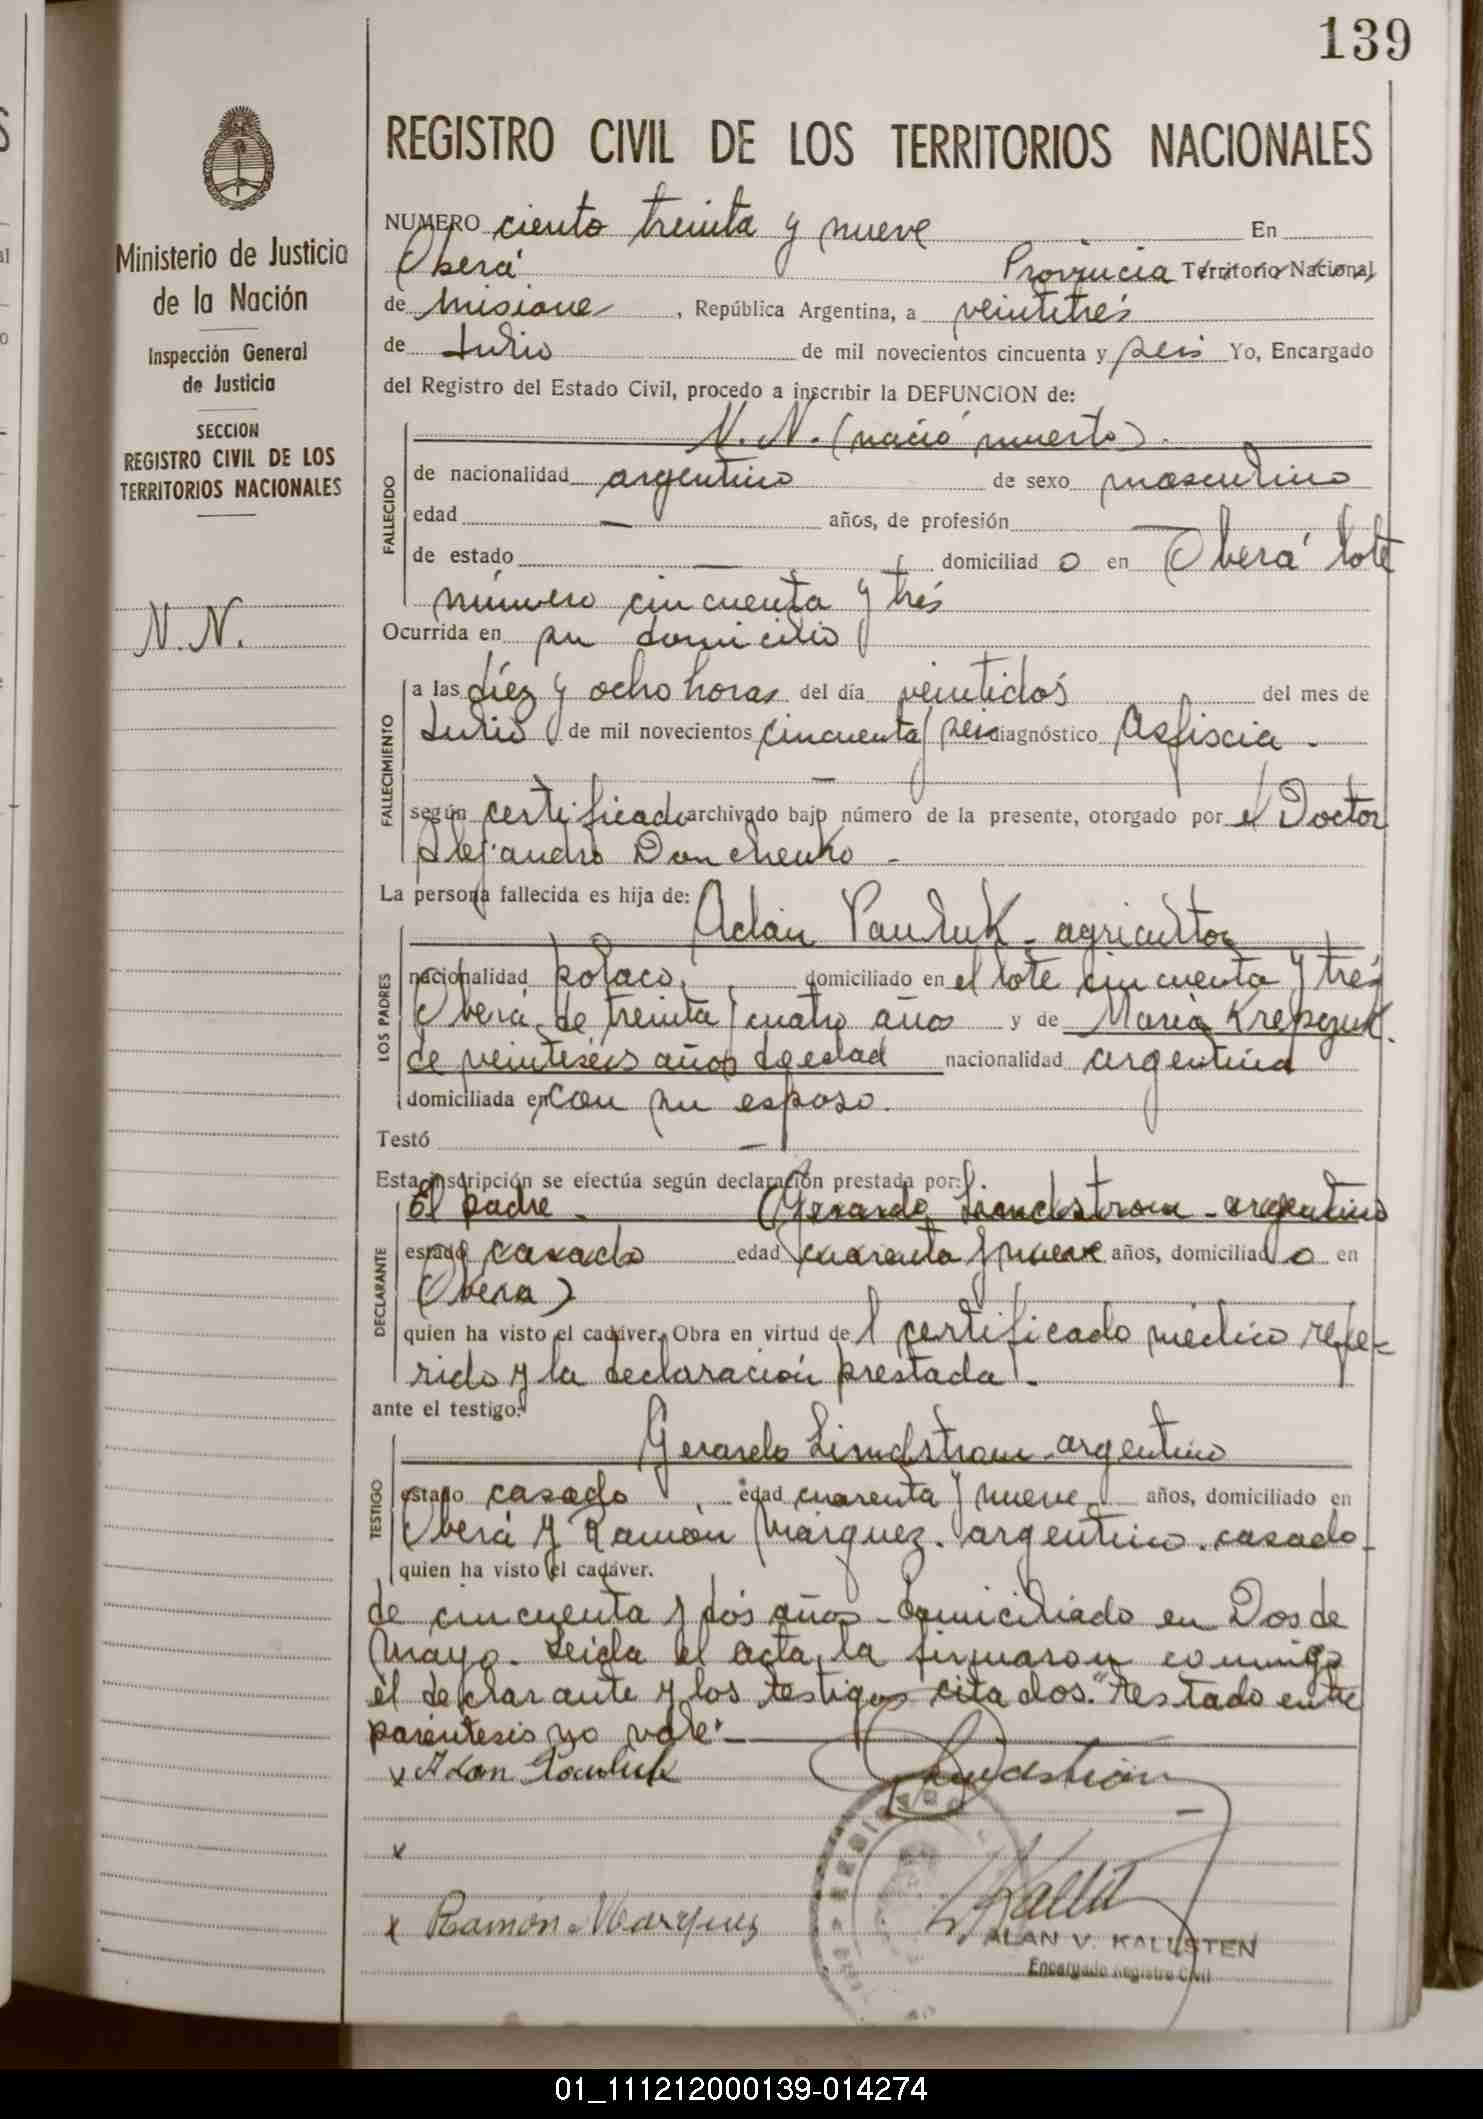 139
Ministerio de Justicia
de la Nación
Inspección General
de Justicia
SECCION
REGISTRO CIVIL DE LOS
TERRITORIOS NACIONALES
N. N.
REGISTRO CIVIL DE LOS TERRITORIOS NACIONALES
NUMERO ciento treinta y nueve En
Oberá Provincia Territorio Nacional,
de Misiones, República Argentina, a veintitrés
de Julio de mil novecientos cincuenta y seis Yo, Encargado
del Registro del Estado Civil, procedo a inscribir la DEFUNCION de:
N. N. (nació muerto).
FALLECIDO
de nacionalidad argentino de sexo masculino
edad — años, de profesión —
de estado — domiciliad o en Oberá lote
número cincuenta y trés
Ocurrida en su domicilio
FALLECIMIENTO
a las diez y ocho horas del día veintidos del mes de
Julio de mil novecientos cincuenta y seis diagnóstico Asfiscia -
—
según certificado archivado bajo número de la presente, otorgado por el Doctor
Alejandro Donchenko -
La persona fallecida es hija de:
LOS PADRES
Adán Pauluk - agricultor
nacionalidad polaco, domiciliado en el lote cincuenta y trés
Oberá, de treinta y cuatro años y de María Krepczuk.
de veintiséis años de edad nacionalidad argentina
domiciliada en con su esposo.
Testó —
Esta inscripción se efectúa según declaración prestada por:
DECLARANTE
El padre - (Gerardo Lindstrom - argentino
estado casado edad cuarenta y nueve años, domiciliad o en
Oberá)
quien ha visto el cadáver. Obra en virtud de l certificado médico refe-
rido y la declaración prestada -
ante el testigo:
TESTIGO
Gerardo Lindstrom - argentino
estado casado, edad cuarenta y nueve años, domiciliado en
Oberá y Ramón Márquez. argentino. casado
quien ha visto el cadáver.
de cincuenta y dós años - domiciliado en Dos de
Mayo. Leida el acta, la firmaron conmigo
el declarante y los testigos citados. "Testado entre
paréntesis no vale" -
x Adan Pauluk
x
x Ramón Marquez
ALAN V. KALLSTEN
Encargado Registro Civil
01_111212000139-014274